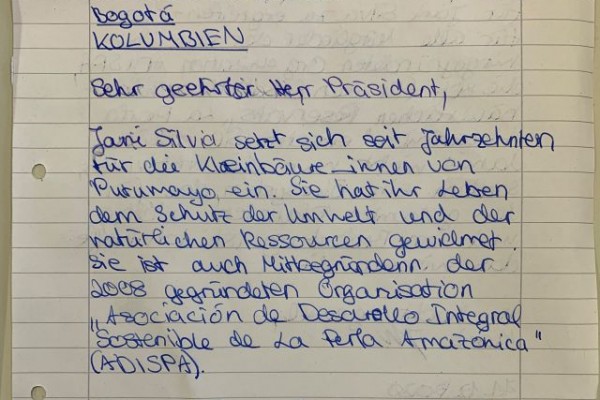 Bogotá
KOLUMBIEN
Sehr geehrter Herr Präsident,
Jani Silva setzt sich seit Jahrzehnten
für die Kleinbäuer_innen von
Putumayo ein. Sie hat ihr Leben
dem Schutz der Umwelt und der
natürlichen Ressourcen gewidmet.
Sie ist auch Mitbegründerin der
2008 gegründeten Organisation
„Asociación de Desarollo Integral
Sostenible de La Perla Amazónica"
(ADISPA).